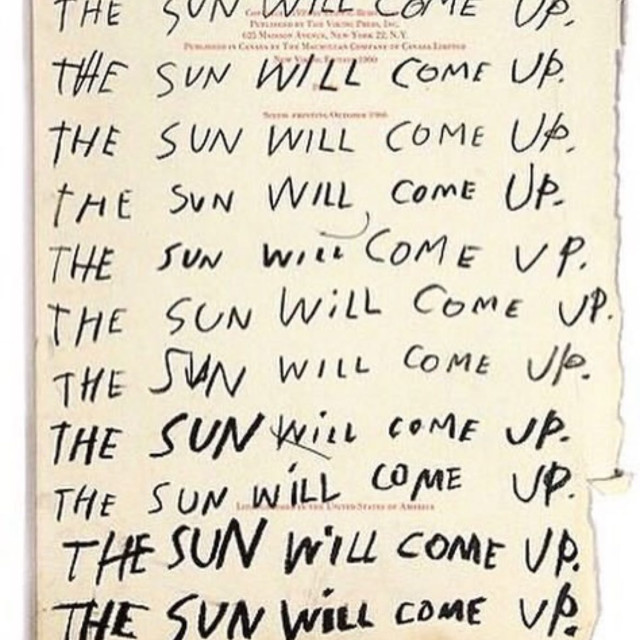 THE SUN WILL COME UP.
PUBLISHED BY THE VIKING PRESS, INC.
625 MADISON AVENUE, NEW YORK 22, N.Y.
PUBLISHED IN CANADA BY THE MACMILLAN COMPANY OF CANADA LIMITED
THE SUN WILL COME UP.
SIXTH PRINTING OCTOBER 1966
THE SUN WILL COME UP.
THE SUN WILL COME UP.
THE SUN WiLL COME UP.
THE SUN WiLL COME UP.
THE SUN WILL COME UP.
THE SUN WiLL COME UP.
THE SUN WiLL COME UP.
IN THE UNITED STATES OF AMERICA
THE SUN WiLL COME UP.
THE SUN WiLL COME UP.